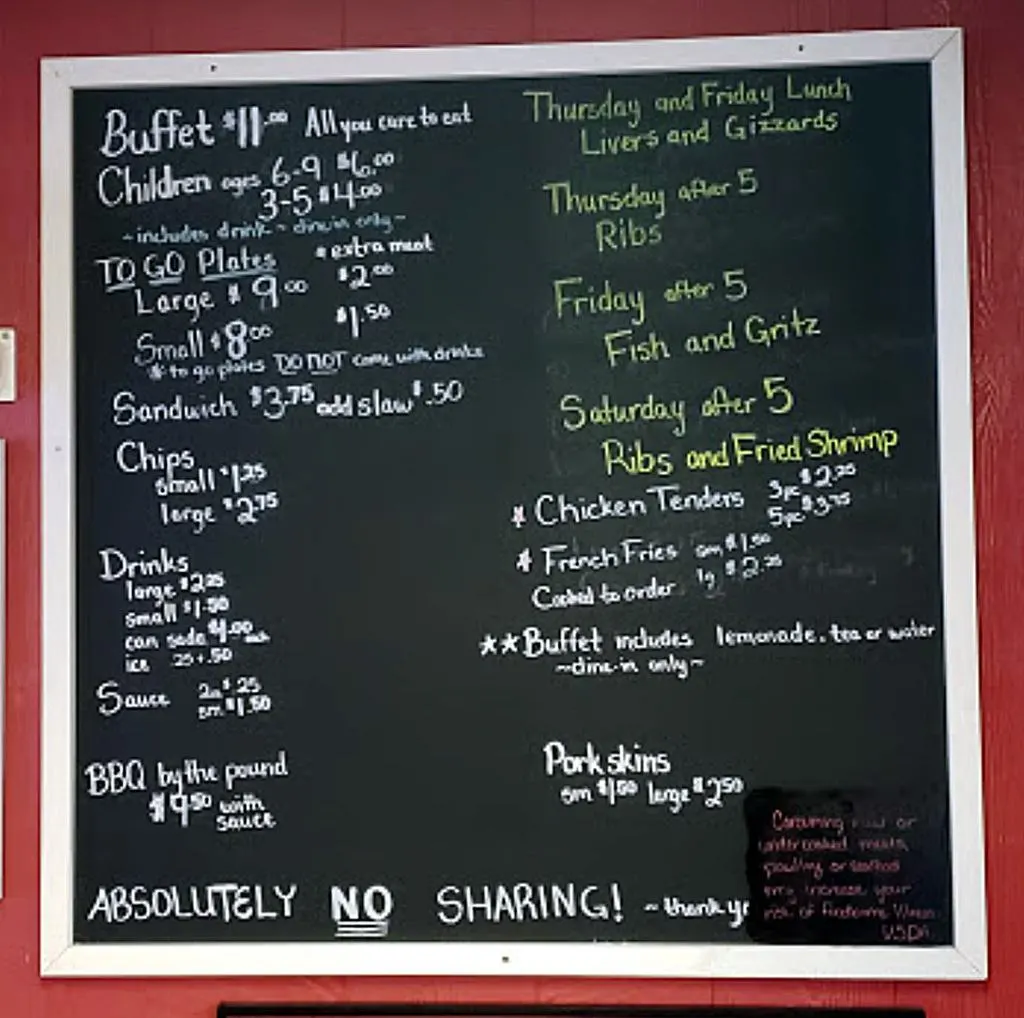 Buffet $11.00 All you care to eat
Children ages 6-9 $6.00
3-5 $4.00
~includes drink ~ dine in only~
TO GO Plates * extra meat
Large $9.00 $2.00
Small $8.00 $1.50
* to go plates DO NOT come with drinks
Sandwich $3.75 add slaw $.50
Chips
small $1.25
large $2.75
Drinks
large $2.25
small $1.50
can soda $1.00 each
ice .25 + .50
Sauce 2oz $.25
sm $1.50
BBQ by the pound
$9.50 with
sauce
Thursday and Friday Lunch
Livers and Gizzards
Thursday after 5
Ribs
Friday after 5
Fish and Gritz
Saturday after 5
Ribs and Fried Shrimp
* Chicken Tenders 3pc $2.25
5pc $3.75
* French Fries sm $1.50
Cooked to order lg $2.25
**Buffet includes lemonade, tea or water
~dine-in only~
Pork skins
sm $1.50 large $2.50
ABSOLUTELY NO SHARING! ~thank y
Consuming raw or
undercooked meats,
poultry or seafood
may increase your
risk of foodborne illness
USDA